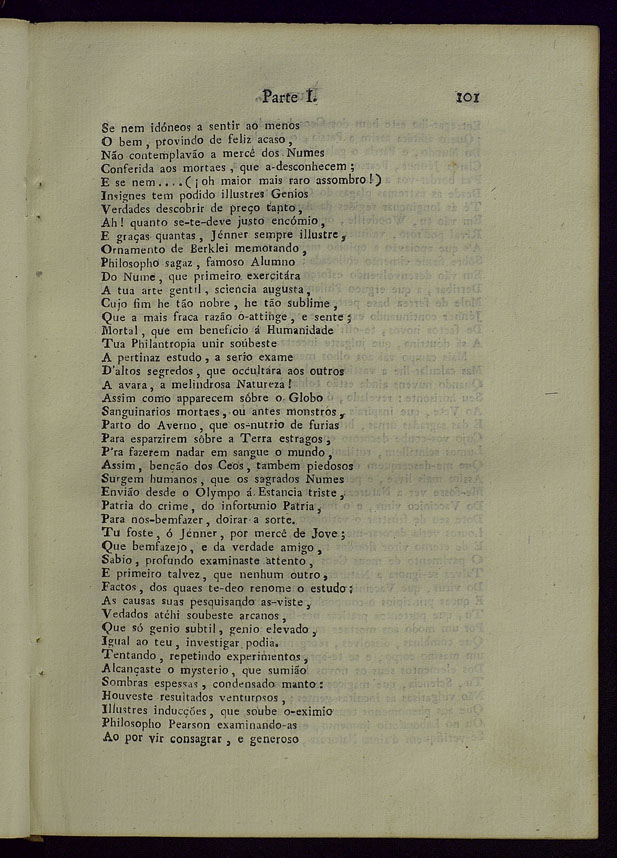 Parte I. 101
Se nem idóneos a sentir ao menos
O bem, provindo de feliz acaso,
Não contemplavão a mercê dos Numes
Conferida aos mortaes, que a-desconhecem;
E se nem....(¡oh maior mais raro assombro!)
Insignes tem podido illustres Genios
Verdades descobrir de preço tanto,
Ah! quanto se-te-deve justo encómio,
E graças quantas, Jénner sempre illustre,
Ornamento de Berklei memorando,
Philosopho sagaz, famoso Alumno
Do Nume, que primeiro exercitára
A tua arte gentil, sciencia augusta,
Cujo fim he tão nobre, he tão sublime,
Que a mais fraca razão o-attinge, e sente;
Mortal, que em beneficio á Humanidade
Tua Philantropia unir soúbeste
A pertinaz estudo, a serio exame
D'altos segredos, que occultára aos outros
A avara, a melindrosa Natureza!
Assim como apparecem sôbre o Globo
Sanguinarios mortaes, ou antes monstros,
Parto do Averno, que os-nutrio de furias
Para esparzirem sôbre a Terra estragos,
P'ra fazerem nadar em sangue o mundo,
Assim, benção dos Ceos, tambem piedosos
Surgem humanos, que os sagrados Numes
Envião desde o Olympo á Estancia triste,
Patria do crime, do infortunio Patria,
Para nos-bemfazer, doirar a sorte.
Tu foste, ó Jénner, por mercê de Jove;
Que bemfazejo, e da verdade amigo,
Sabio, profundo examinaste attento,
E primeiro talvez, que nenhum outro,
Factos, dos quaes te-deo renome o estudo:
As causas suas pesquisando as-viste,
Vedados atéhi soubeste arcanos,
Que só genio subtil, genio elevado,
Igual ao teu, investigar podia.
Tentando, repetindo experimentos,
Alcançaste o mysterio, que sumião
Sombras espessas, condensado manto:
Houveste resultados venturosos,
Illustres inducções, que soube o-eximio
Philosopho Pearson examinando-as
Ao por vir consagrar, e generoso